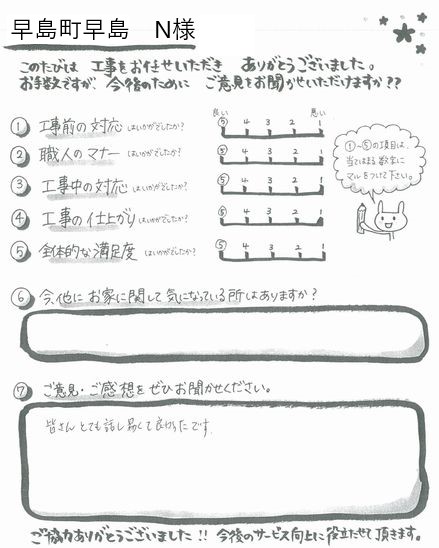 早島町早島　N様
このたびは 工事をお任せいただき ありがとうございました。
お手数ですが、今後のために ご意見をお聞かせいただけますか??
良い 悪い
① 工事前の対応 はいかがでしたか? ⑤ 4 3 2 1
② 職人のマナー はいかがでしたか? ⑤ 4 3 2 1
③ 工事中の対応 はいかがでしたか? ⑤ 4 3 2 1
④ 工事の仕上がり はいかがでしたか? ⑤ 4 3 2 1
⑤ 全体的な満足度 はいかがでしたか? ⑤ 4 3 2 1
①〜⑤の項目は、
当てはまる数字に
マルをつけて下さい。
⑥ 今、他に お家に関して 気になっている所はありますか?
⑦ ご意見・ご感想を ぜひお聞かせください。
皆さん とても話し易くて良かったです
ご協力ありがとうございました!! 今後のサービス向上に役立たせて頂きます。